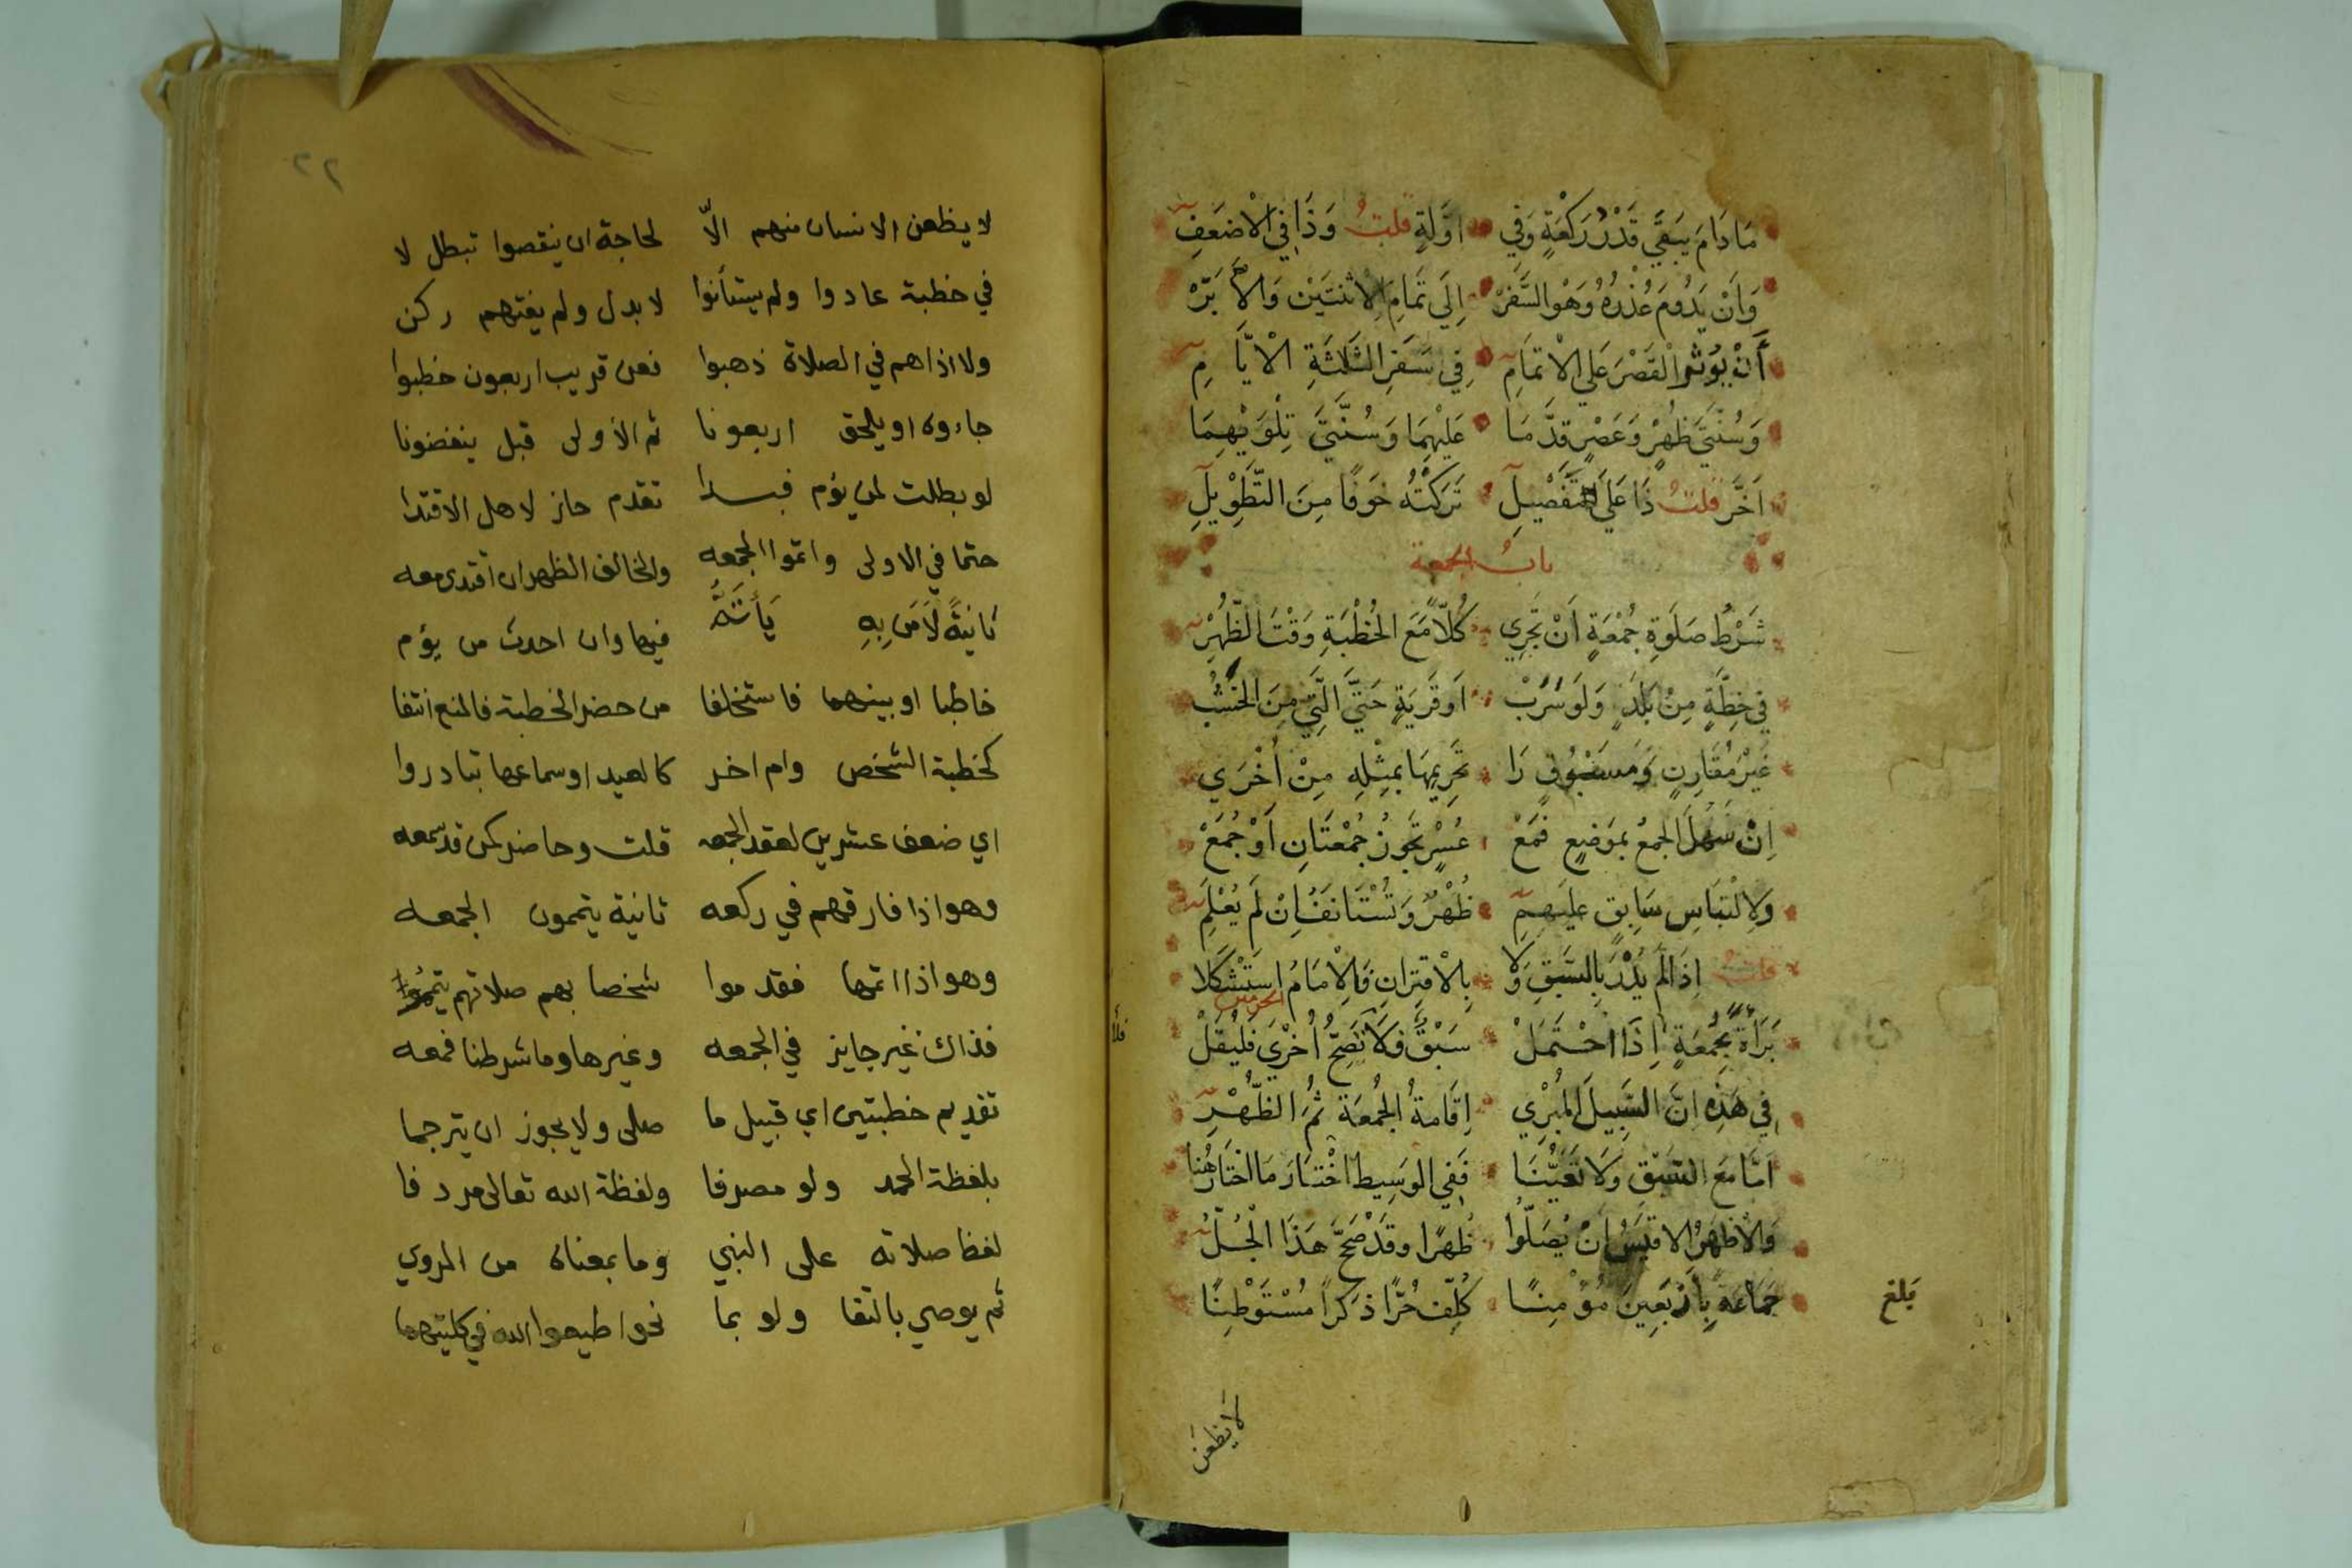 مَا دَامَ يَبْقَى قَدْرُ رَكْعَةٍ وَفِي اوَّلَةٍ قلتُ وَذَا فِي الْأضعَفِ
وَاَنْ يَدُومَ عُذْرُهُ وَهْوَ السَّفَرْ اِلَى تَمَامِ الِاثْنَتَيْن وَالأَبَرّْ
أَنْ يُؤْثرَ الْقَصْرَ عَلَى الْاتمَامِ فِي سَفَرِ الثَّلَاثَةِ الْأيَّامِ
وَسُنَّتَيْ ظُهْرٍ وَعَصْرٍ قَدَّمَا عَلَيْهِمَا وَسُنَّتَيْ تِلْوَيْهِمَا
اَخَّرَ قلتُ ذَا عَلَى التَّفصِيلِ تَرَكْتُهُ خَوفًا مِنَ التَّطْوِيلِ
بابُ الجمعة
شَرْطُ صَلَوةِ جُمْعَةٍ اَنْ تَجْرِي كُلًّا مَعَ الْخُطْبَةِ وَقْتَ الظُّهْرِ
فِي خِطَّةٍ مِنْ بَلَدٍ وَلَو سَرَبْ اَو قَرْيَةٍ حَتَّى الَّتِي مِنَ الْخَشَبْ
غَيْرَ مُقَارِنٍ وَمَسْبُوقٍ رَا تَحْرِيمِهَا بِمِثْلِهِ مِنْ اُخْرَى
اِنْ سَهُلَ الجمعُ بمَوضِعٍ فَمَعْ عُسْرٍ تَجُوزُ جُمْعَتَانِ اَوْ جُمَعْ
وَلِالْتِبَاسِ سَابِقٍ عَلَيهِمِ ظُهْرٌ وَتُسْتَانَفُ اِنْ لَم يُعْلَمِ
قلتُ اِذَا لَم يُدْرَ بِالسَّبَقِ وَلَا بِالْاقتِرَانِ فَالْاِمَامُ اسْتَشْكَلَا
الحرمين
بَرَاءَةً بِجُمْعَةٍ اِذَا احْتَمَلْ سَبْقٌ فَلَا تَصِحُّ اُخْرَى فَلْيُقَلْ
فِي هَذِهِ اِنَّ السَّبِيلَ الْمُبْرِي اِقَامَةُ الْجُمْعَةِ ثُمَّ الظُّهْرِ
اَمَّا مَعَ السَّبْقِ وَلَا تَعَيُّنَا فَفِي الْوَسِيطِ اخْتَارَ مَا اخْتَارَ هُنَا
وَالْاظهَرُ الاقيَسُ اَنْ يُصَلُّوا ظُهْرًا وَقَدْ صَحَّحَ هَذَا الْجُلُّ
جَمَاعَةً بِاَرْبَعِينَ مُؤْمِنًا كُلِّفَ حُرًّا ذَكَرًا مُسْتَوْطِنًا
بلغ
لا يظعن
٢٢
لا يظعن الانسان منهم الّا لحاجة ان ينقصوا تبطل لا
في خطبة عادوا ولم يستأنوا لا بدل ولم يفتهم ركن
ولا اذا هم في الصلاة ذهبوا فعن قريب اربعون خطبوا
جاءوه او يلحق اربعونا ثم الأولى قبل ينفضونا
لو بطلت لمن يؤم فبدا تقدم جاز لاهل الاقتدا
حتما في الاولى واتموا الجمعه والخالف الظهر ان اقتدى معه
ثانيةً لَا مَن بِهِ يَأْتَمُّ فيها وان احدث من يؤم
خاطبا او بينهما فاستخلفا من حضر الخطبة فالمنع انتفا
كخطبة الشخص وام اخر كالعيد او سماعها تبادروا
اي ضعف عشرين لعقد الجمعه قلت وحاضر كمن قد سمعه
وهو اذا فارقهم في ركعه ثانية يتممون الجمعه
وهو اذا اتمها فقدموا شخصا بهم صلاتهم يتمموا
فذاك غير جايز في الجمعه وغيرها وما شرطنا فمعه
تقديم خطبتين اي قبيل ما صلى ولا يجوز ان يترجما
بلفظة الحمد ولو مصرفا ولفظة الله تعالى مردفا
لفظ صلاته على النبي وما بمعناه من المروي
ثم يوصي بالتقا ولو بما نحو اطيعوا الله في كلتيهما